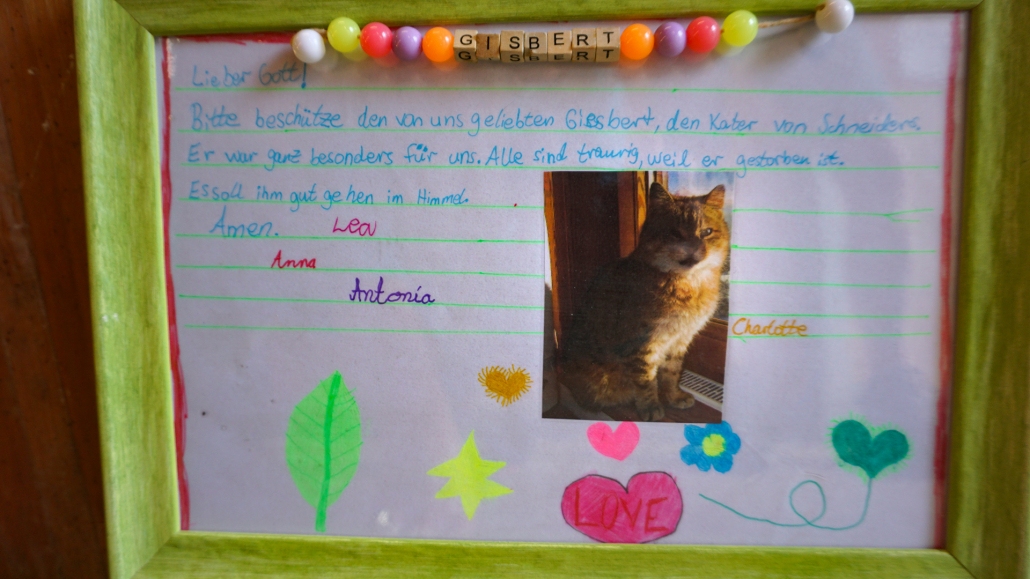 GISBERT
Lieber Gott!
Bitte beschütze den von uns geliebten Giesbert, den Kater von Schneiders.
Er war ganz besonders für uns. Alle sind traurig, weil er gestorben ist.
Es soll ihm gut gehen im Himmel.
Amen. Lea
Anna
Antonia
Charlotte
LOVE